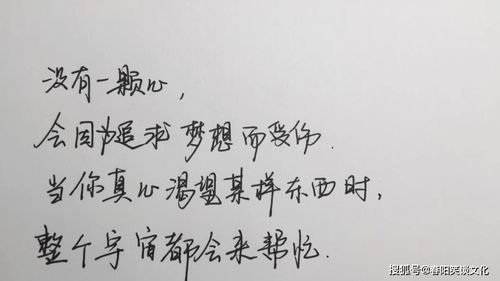 没有一颗心，
会因为追求梦想而受伤.
当你真心渴望某样东西时，
整个宇宙都会来帮忙.
搜狐号@春阳笑谈文化